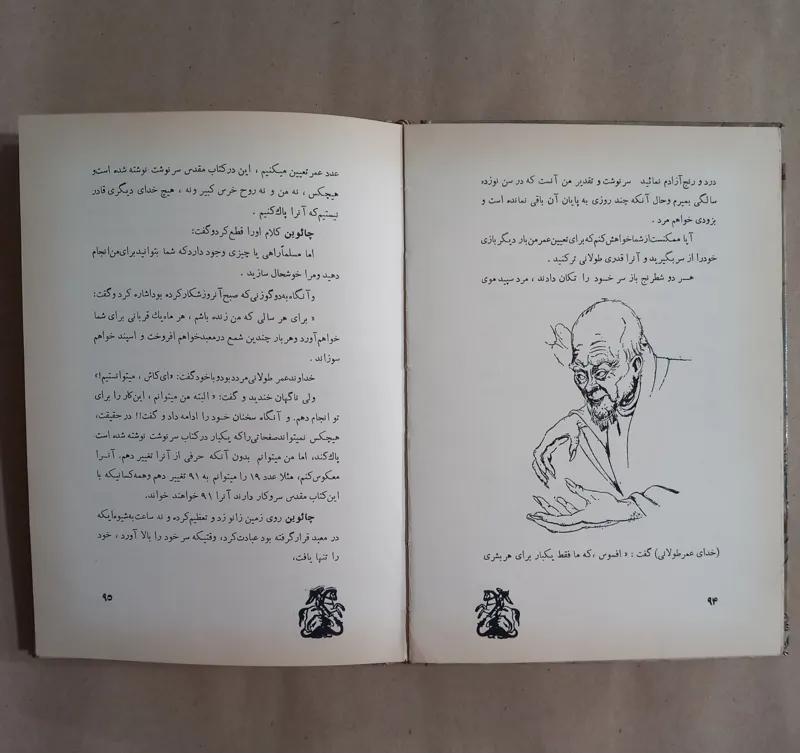 درد و رنج آزادم نمائید سرنوشت و تقدیر من آنست که در سن نوزده
سالگی بمیرم وحال آنکه چند روزی به پایان آن باقی نمانده است و
بزودی خواهم مرد .
آیا ممکنست از شما خواهش کنم که برای تعیین عمر من بار دیگر بازی
خودرا از سر بگیرید و آنرا قدری طولانی‌تر کنید .
هر دو شطرنج باز سر خود را تکان دادند ، مرد سپید موی
(خدای عمر طولانی) گفت : « افسوس ، که ما فقط یکبار برای هر بشری
۹۴
عدد عمر تعیین میکنیم ، این در کتاب مقدس سرنوشت نوشته شده است و
هیچکس ، نه من و نه روح خرس کبیر ونه ، هیچ خدای دیگری قادر
نیستیم که آنرا پاك کنیم .
چائوبن کلام اورا قطع کرد و گفت:
اما مسلماً راهی یا چیزی وجود دارد که شما بتوانید برای من انجام
دهید ومرا خوشحال سازید .
و آنگاه به دو گوزنی که صبح آنروز شکار کرده بود اشاره کرد و گفت:
« برای هر سالی که من زنده باشم ، هر ماه یك قربانی برای شما
خواهم آورد و هر بار چندین شمع در معبد خواهم افروخت و اسپند خواهم
سوزاند .
خداوند عمر طولانی مردد بود و با خود گفت: «ای کاش ، میتوانستیم!»
ولی ناگهان خندید و گفت: « البته من میتوانم ، این کار را برای
تو انجام دهم. و آنگاه سخنان خود را ادامه داد و گفت!! در حقیقت،
هیچکس نمیتواند صفحاتی را که یکبار در کتاب سرنوشت نوشته شده است
پاك کند، اما من میتوانم بدون آنکه حرفی از آنرا تغییر دهم. آنرا
معکوس کنم، مثلا عدد ۱۹ را میتوانم به ۹۱ تغییر دهم و همه کسانیکه با
این کتاب مقدس سروکار دارند آنرا ۹۱ خواهند خواند.
چائوبن روی زمین زانو زد و تعظیم کرده و نه ساعت به شیوه‌ایکه
در معبد قرار گرفته بود عبادت کرد، وقتیکه سر خود را بالا آورد ، خود
را تنها یافت،
۹۵